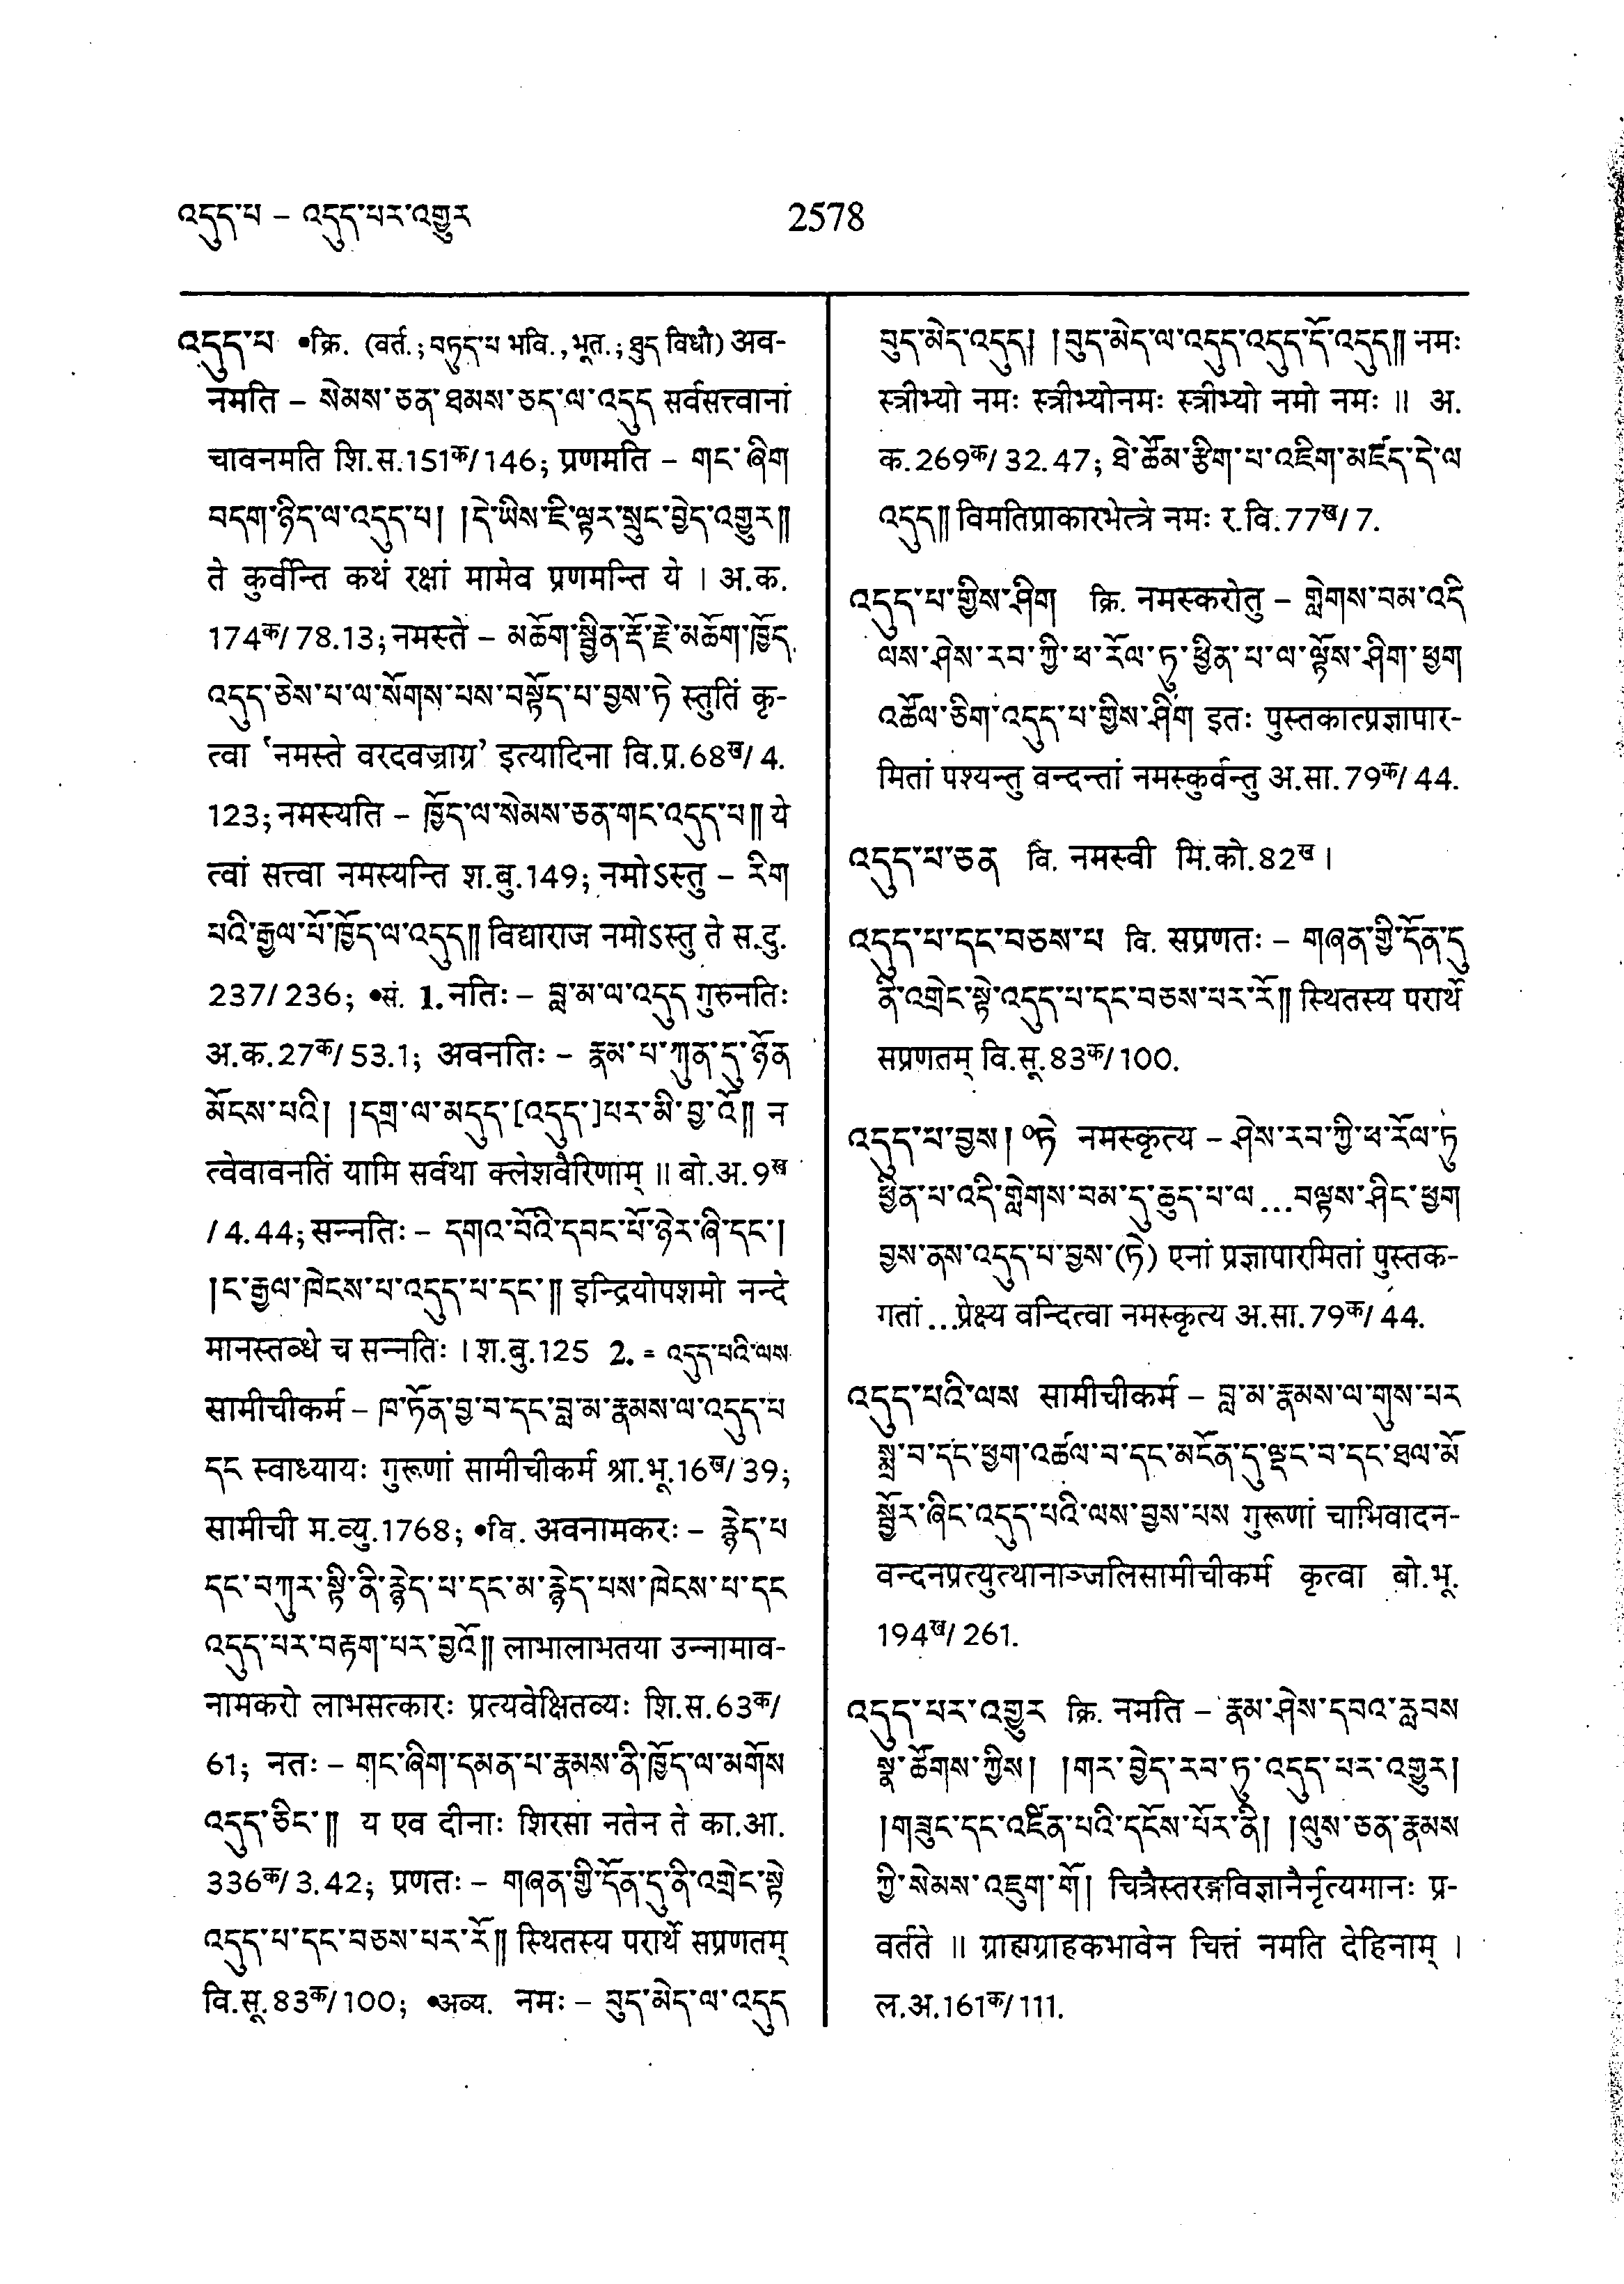 འདུད་པ – འདུད་པར་འགྱུར
2578
འདུད་པ •क्रि. (वर्त.; བཏུད་པ भवि., भूत.; ཐུད विधौ) अव-
नमति – སེམས་ཅན་ཐམས་ཅད་ལ་འདུད सर्वसत्त्वानां
चावनमति शि.स.151क/146; प्रणमति – གང་ཞིག
བདག་ཉིད་ལ་འདུད་པ། །དེ་ཡིས་ཇི་ལྟར་སྲུང་བྱེད་འགྱུར༎
ते कुर्वन्ति कथं रक्षां मामेव प्रणमन्ति ये । अ.क.
174क/78.13; नमस्ते – མཆོག་སྦྱིན་རྡོ་རྗེ་མཆོག་ཁྱོད
འདུད་ཅེས་པ་ལ་སོགས་པས་བསྟོད་པ་བྱས་ཏེ स्तुतिं कृ-
त्वा 'नमस्ते वरदवज्राग्र' इत्यादिना वि.प्र.68ख/4.
123; नमस्यति – ཁྱོད་ལ་སེམས་ཅན་གང་འདུད་པ༎ ये
त्वां सत्त्वा नमस्यन्ति श.बु.149; नमोऽस्तु – རིག
པའི་རྒྱལ་པོ་ཁྱོད་ལ་འདུད༎ विद्याराज नमोऽस्तु ते स.दु.
237/236; •सं. 1. नतिः – བླ་མ་ལ་འདུད गुरुनतिः
अ.क.27क/53.1; अवनतिः – རྣམ་པ་ཀུན་དུ་ཉོན
མོངས་པའི། །དགྲ་ལ་མདུད་[འདུད་]པར་མི་བྱ་འོ༎ न
त्वेवावनतिं यामि सर्वथा क्लेशवैरिणाम् ॥ बो.अ.9ख
/4.44; सन्नतिः – དགའ་བོའི་དབང་པོ་ཉེར་ཞི་དང་།
།ང་རྒྱལ་ཁེངས་པ་འདུད་པ་དང་༎ इन्द्रियोपशमो नन्दे
मानस्तब्धे च सन्नतिः । श.बु.125 2. = འདུད་པའི་ལས
सामीचीकर्म – ཁ་ཏོན་བྱ་བ་དང་བླ་མ་རྣམས་ལ་འདུད་པ
དང स्वाध्यायः गुरूणां सामीचीकर्म श्रा.भू.16ख/39;
सामीची म.व्यु.1768; •वि. अवनामकरः – རྙེད་པ
དང་བཀུར་སྟི་ནི་རྙེད་པ་དང་མ་རྙེད་པས་ཁེངས་པ་དང
འདུད་པར་བརྟག་པར་བྱའོ༎ लाभालाभतया उन्नामाव-
नामकरो लाभसत्कारः प्रत्यवेक्षितव्यः शि.स.63क/
61; नतः – གང་ཞིག་དམན་པ་རྣམས་ནི་ཁྱོད་ལ་མགོས
འདུད་ཅིང་༎ य एव दीनाः शिरसा नतेन ते का.आ.
336क/3.42; प्रणतः – གཞན་གྱི་དོན་དུ་ནི་འགྲེང་སྟེ
འདུད་པ་དང་བཅས་པར་རོ༎ स्थितस्य परार्थे सप्रणतम्
वि.सू.83क/100; •अव्य. नमः – བུད་མེད་ལ་འདུད
བུད་མེད་འདུད། །བུད་མེད་ལ་འདུད་འདུད་དོ་འདུད༎ नमः
स्त्रीभ्यो नमः स्त्रीभ्योनमः स्त्रीभ्यो नमो नमः ॥ अ.
क.269क/32.47; ཐེ་ཚོམ་རྩིག་པ་འཇིག་མཛད་དེ་ལ
འདུད༎ विमतिप्राकारभेत्त्रे नमः र.वि.77ख/7.
འདུད་པ་གྱིས་ཤིག क्रि. नमस्करोतु – གླེགས་བམ་འདི
ལས་ཤེས་རབ་ཀྱི་ཕ་རོལ་ཏུ་ཕྱིན་པ་ལ་ལྟོས་ཤིག་ཕྱག
འཚོལ་ཅིག་འདུད་པ་གྱིས་ཤིག इतः पुस्तकात्प्रज्ञापार-
मितां पश्यन्तु वन्दन्तां नमस्कुर्वन्तु अ.सा.79क/44.
འདུད་པ་ཅན वि. नमस्वी मि.को.82ख।
འདུད་པ་དང་བཅས་པ वि. सप्रणतः – གཞན་གྱི་དོན་དུ
ནི་འགྲེང་སྟེ་འདུད་པ་དང་བཅས་པར་རོ༎ स्थितस्य परार्थे
सप्रणतम् वि.सू.83क/100.
འདུད་པ་བྱས། ०ཏེ नमस्कृत्य – ཤེས་རབ་ཀྱི་ཕ་རོལ་ཏུ
ཕྱིན་པ་འདི་གླེགས་བམ་དུ་ཆུད་པ་ལ...བལྟས་ཤིང་ཕྱག
བྱས་ནས་འདུད་པ་བྱས་(ཏེ) एनां प्रज्ञापारमितां पुस्तक-
गतां...प्रेक्ष्य वन्दित्वा नमस्कृत्य अ.सा.79क/44.
འདུད་པའི་ལས सामीचीकर्म – བླ་མ་རྣམས་ལ་གུས་པར
སྨྲ་བ་དང་ཕྱག་འཚལ་བ་དང་མངོན་དུ་ལྡང་བ་དང་ཐལ་མོ
སྦྱོར་ཞིང་འདུད་པའི་ལས་བྱས་པས गुरूणां चाभिवादन-
वन्दनप्रत्युत्थानाञ्जलिसामीचीकर्म कृत्वा बो.भू.
194ख/261.
འདུད་པར་འགྱུར क्रि. नमति – རྣམ་ཤེས་དབའ་རླབས
སྣ་ཚོགས་ཀྱིས། །གར་བྱེད་རབ་ཏུ་འདུད་པར་འགྱུར།
།གཟུང་དང་འཛིན་པའི་དངོས་པོར་ནི། །ལུས་ཅན་རྣམས
ཀྱི་སེམས་འཇུག་གོ། चित्रैस्तरङ्गविज्ञानैर्नृत्यमानः प्र-
वर्तते ॥ ग्राह्यग्राहकभावेन चित्तं नमति देहिनाम् ।
ल.अ.161क/111.